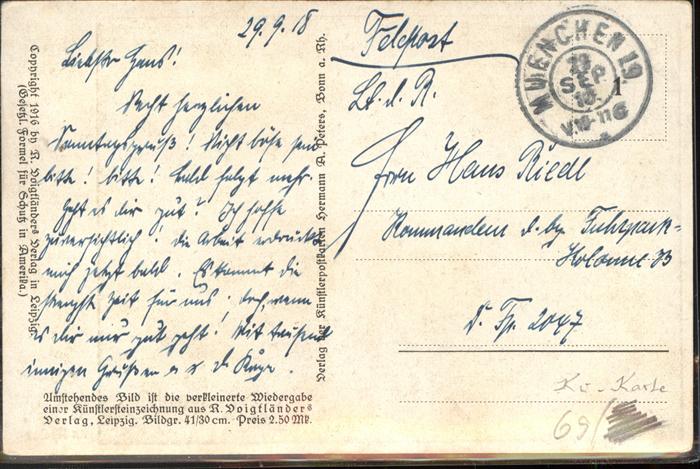 29.9.18
Liebster Hans!
Recht herzlichen
Sonntagsgruß! Nicht böse sein
bitte! bitte! bald folgt mehr.
Geht es dir gut? Ich hoffe
zuversichtlich! die Arbeit erdrückt
mich jetzt bald. Es kommt die
Zeit für uns. doch, wenn
es dir nur gut geht! Mit tausend
innigen Grüßen
Amstehendes Bild ist die verkleinerte Wiedergabe
einer Künstlersteinzeichnung aus R. Voigtländers
Verlag, Leipzig. Bildgr. 41/30 cm. Preis 2.50 Mk.
Copyright 1916 by R. Voigtländers Verlag in Leipzig.
(Gesetzl. Formel für Schutz in Amerika.)
Verlag der Künstlerpostkarten Hermann A. Peters, Bonn a. Rh.
Feldpost
MUENCHEN 19
SEP.
18
1
Lt. d. R.
Herrn Hans Riedl
Kommandeur d. bay. Fuhrpark-
Kolonne 33
D. Fp. 2047
Kü-Karte
69/